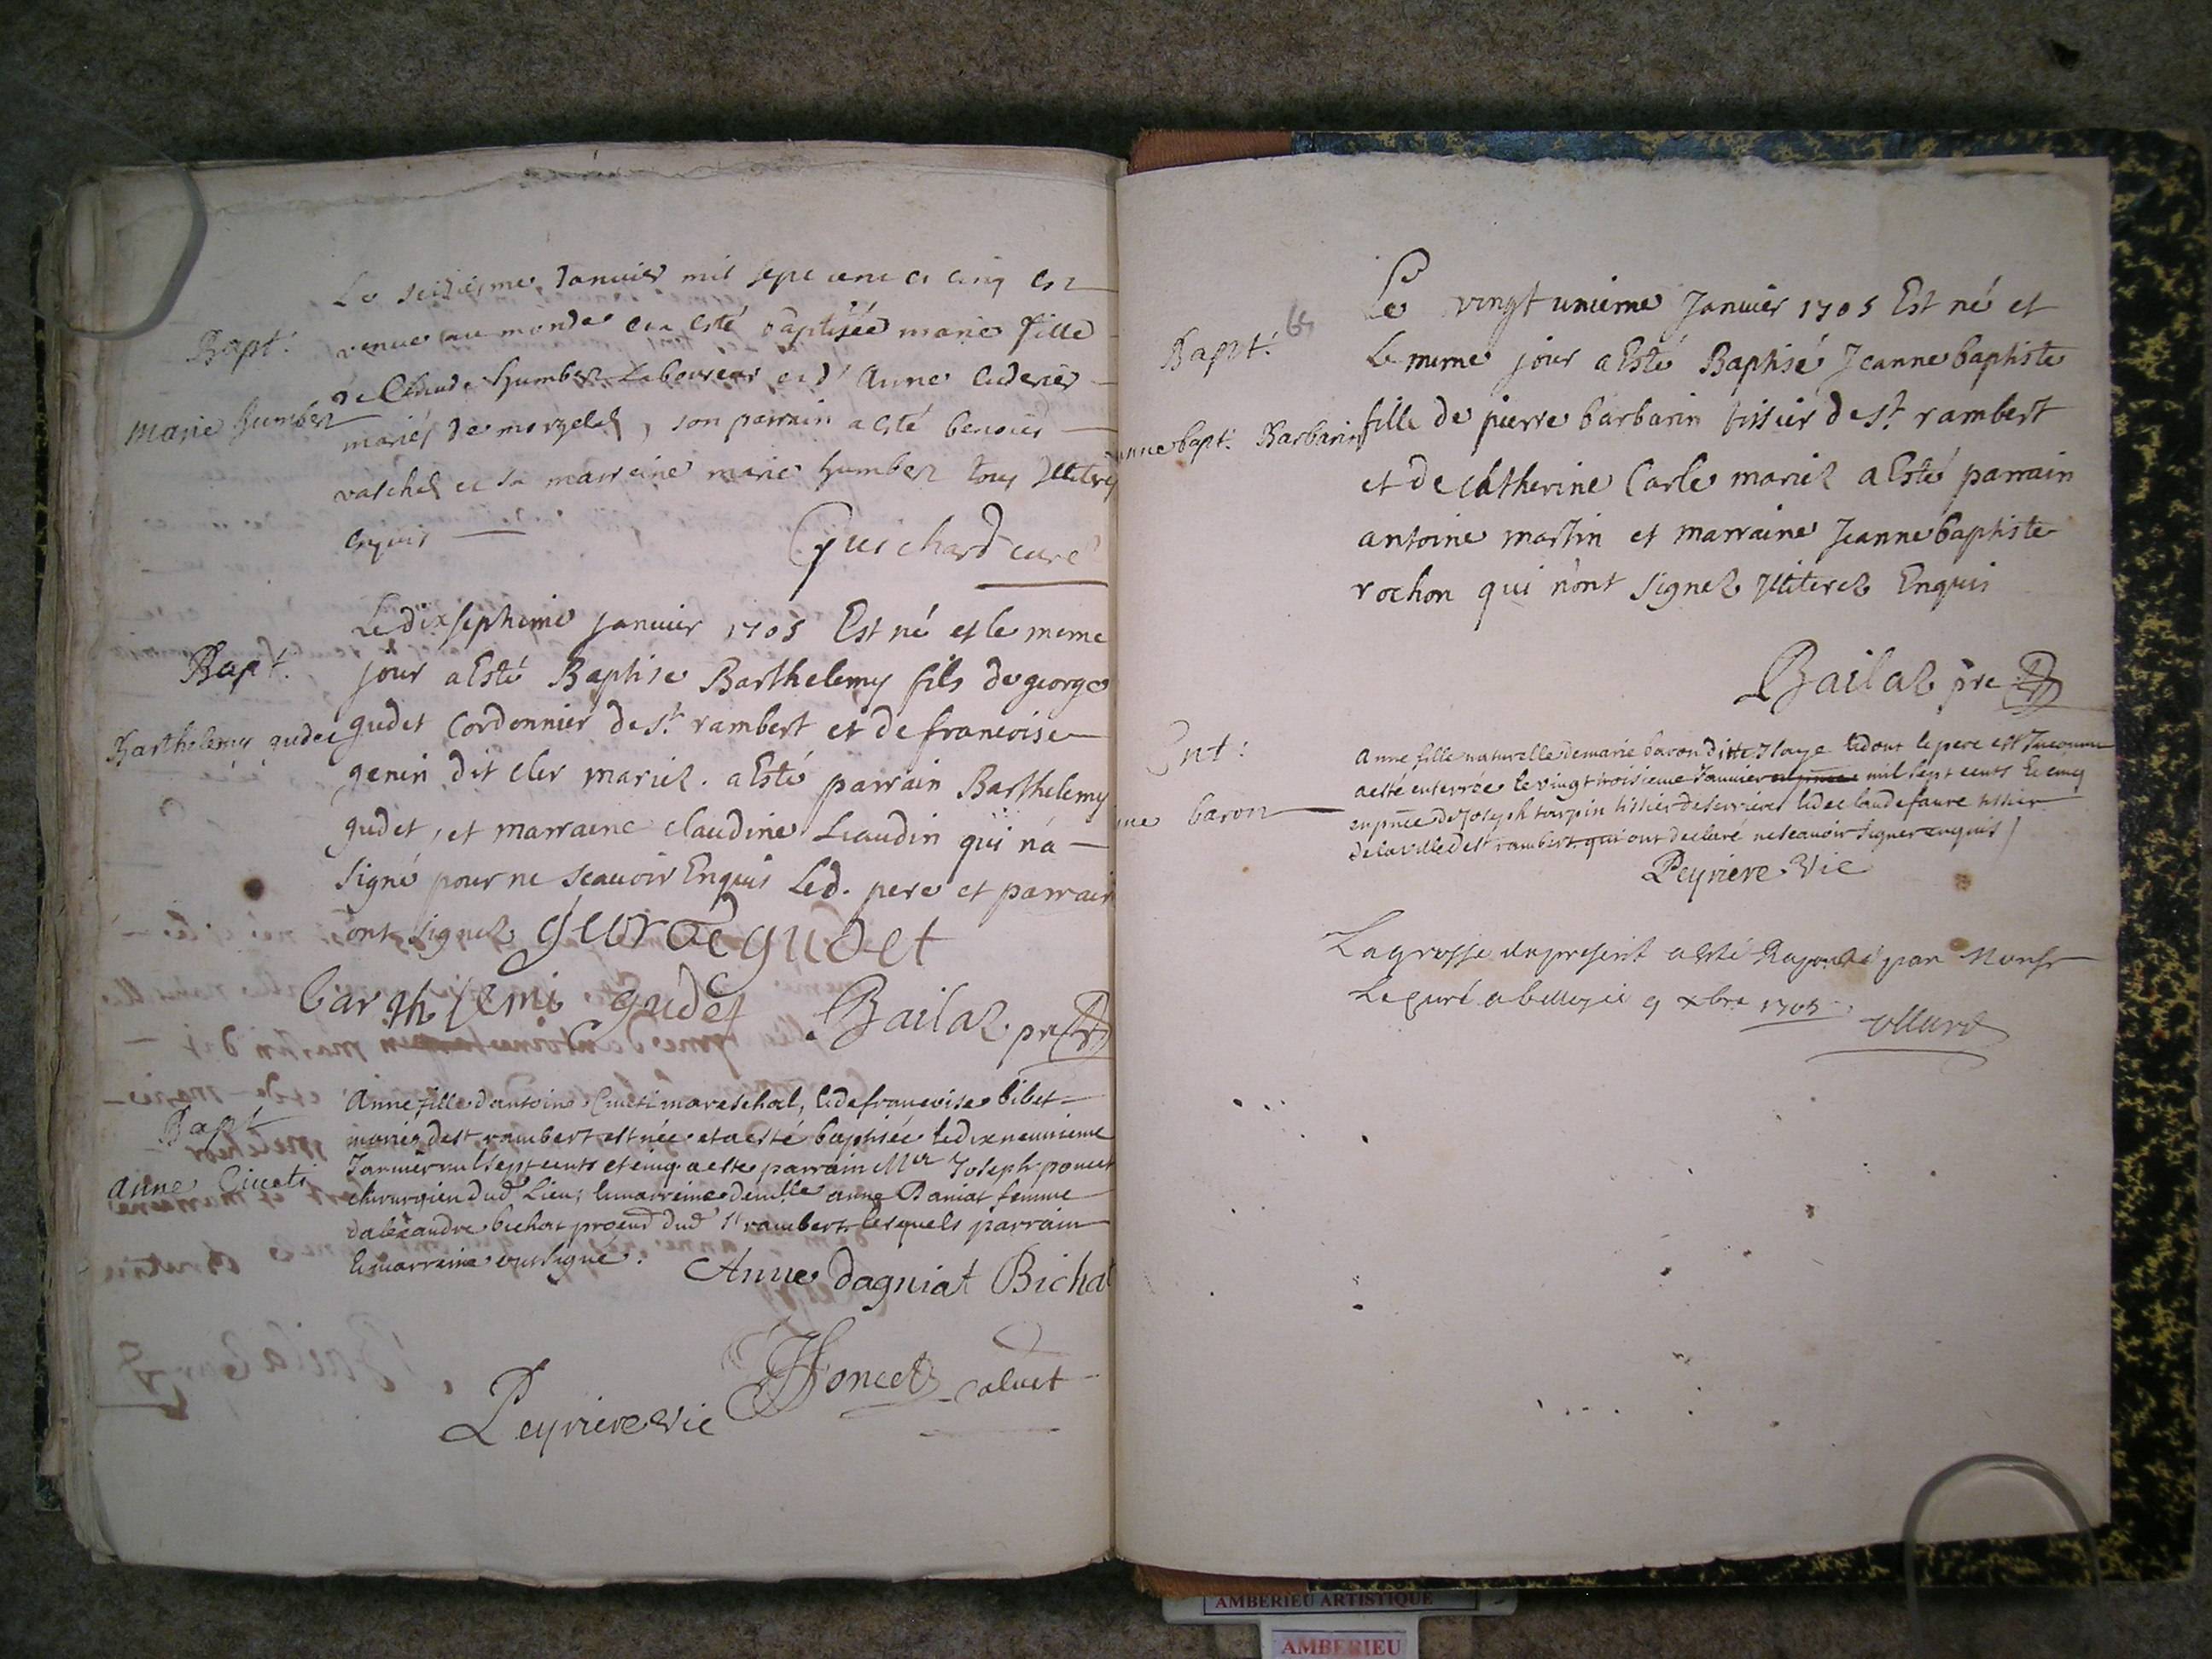 Le seiziesme Januier mil sept cent et cinq est
Bapt. venue au monde et a esté baptisée marie fille
de Claude humbert Laboureur et d'Anne
Marie humbert
mariés de morgelas, son parrain a esté benoist
vaschel et sa marreine marie humbert tous Illiterez
Enquis
Guichard curé
Le dix septieme Januier 1705 Est né et le meme
Bapt. jour a Esté Baptise Barthelemy fils de george
Barthelemy gudet gudet Cordonnier de st. rambert et de francoise
genin dit cler mariez. a Esté parrain Barthelemy
gudet, et marraine claudine Liaudin qui na
signé pour ne scauoir Enquis Led. pere et parrain
ont signez george gudet
barthlemi gudet Bailaz pre
Anne fille dantoine Cincti mareschal, & de francoise bibet
Bapt mariés de st rambert est née et a esté baptisée le dix neuuieme
Anne Cincti Januier mil sept cents et cinq. a esté parrain Mer Joseph poncet
chirurgien dud Lieu, & marreine demlle anne Daniat femme
dalexandre bichat procur dud st rambert lesquels parrain
& marreine ont signé.
Anne dagniat Bichat
JPoncet
Peyriere Vic
65
Le vingt unieme Januier 1705 Est né et
Bapt. Le meme jour a Esté Baptisé Jeanne baptiste
anne bapt. Barbarin fille de pierre barbarin tissier de st. rambert
et de Catherine Carle mariez a Esté parrain
antoine martin et marraine Jeanne baptiste
rochon qui n'ont signez Illiterez Enquis
Bailaz pre
Ent: Anne fille naturelle de marie baron ditte Isaye & dont le pere est Inconnu
a esté enterrée le vingt troisieme Januier mil sept cents & cinq
ne baron en pnce de Joseph turpin tissier de serrieres & de claude faure tissier
de la ville de st rambert qui ont declaré ne scauoir signer enquis
Peyriere Vic
La grosse du present a esté Raporté par Monsr
Le curé a belley ce 9 xbre 1705